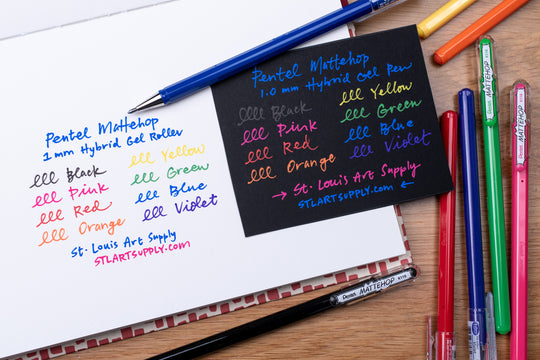 Pentel Mattehop
1 mm Hybrid Gel Roller
lll Black
lll Pink
lll Red
lll Orange
lll Yellow
lll Green
lll Blue
lll Violet
St. Louis Art Supply
STLARTSUPPLY.com
Pentel Mattehop
1.0 mm Hybrid Gel Pen
lll Black
lll Pink
lll Red
lll Orange
lll Yellow
lll Green
lll Blue
lll Violet
→ St. Louis Art Supply
STLARTSUPPLY.com ←
MATTEHOP
Pentel MATTEHOP
Pentel MATTEHOP